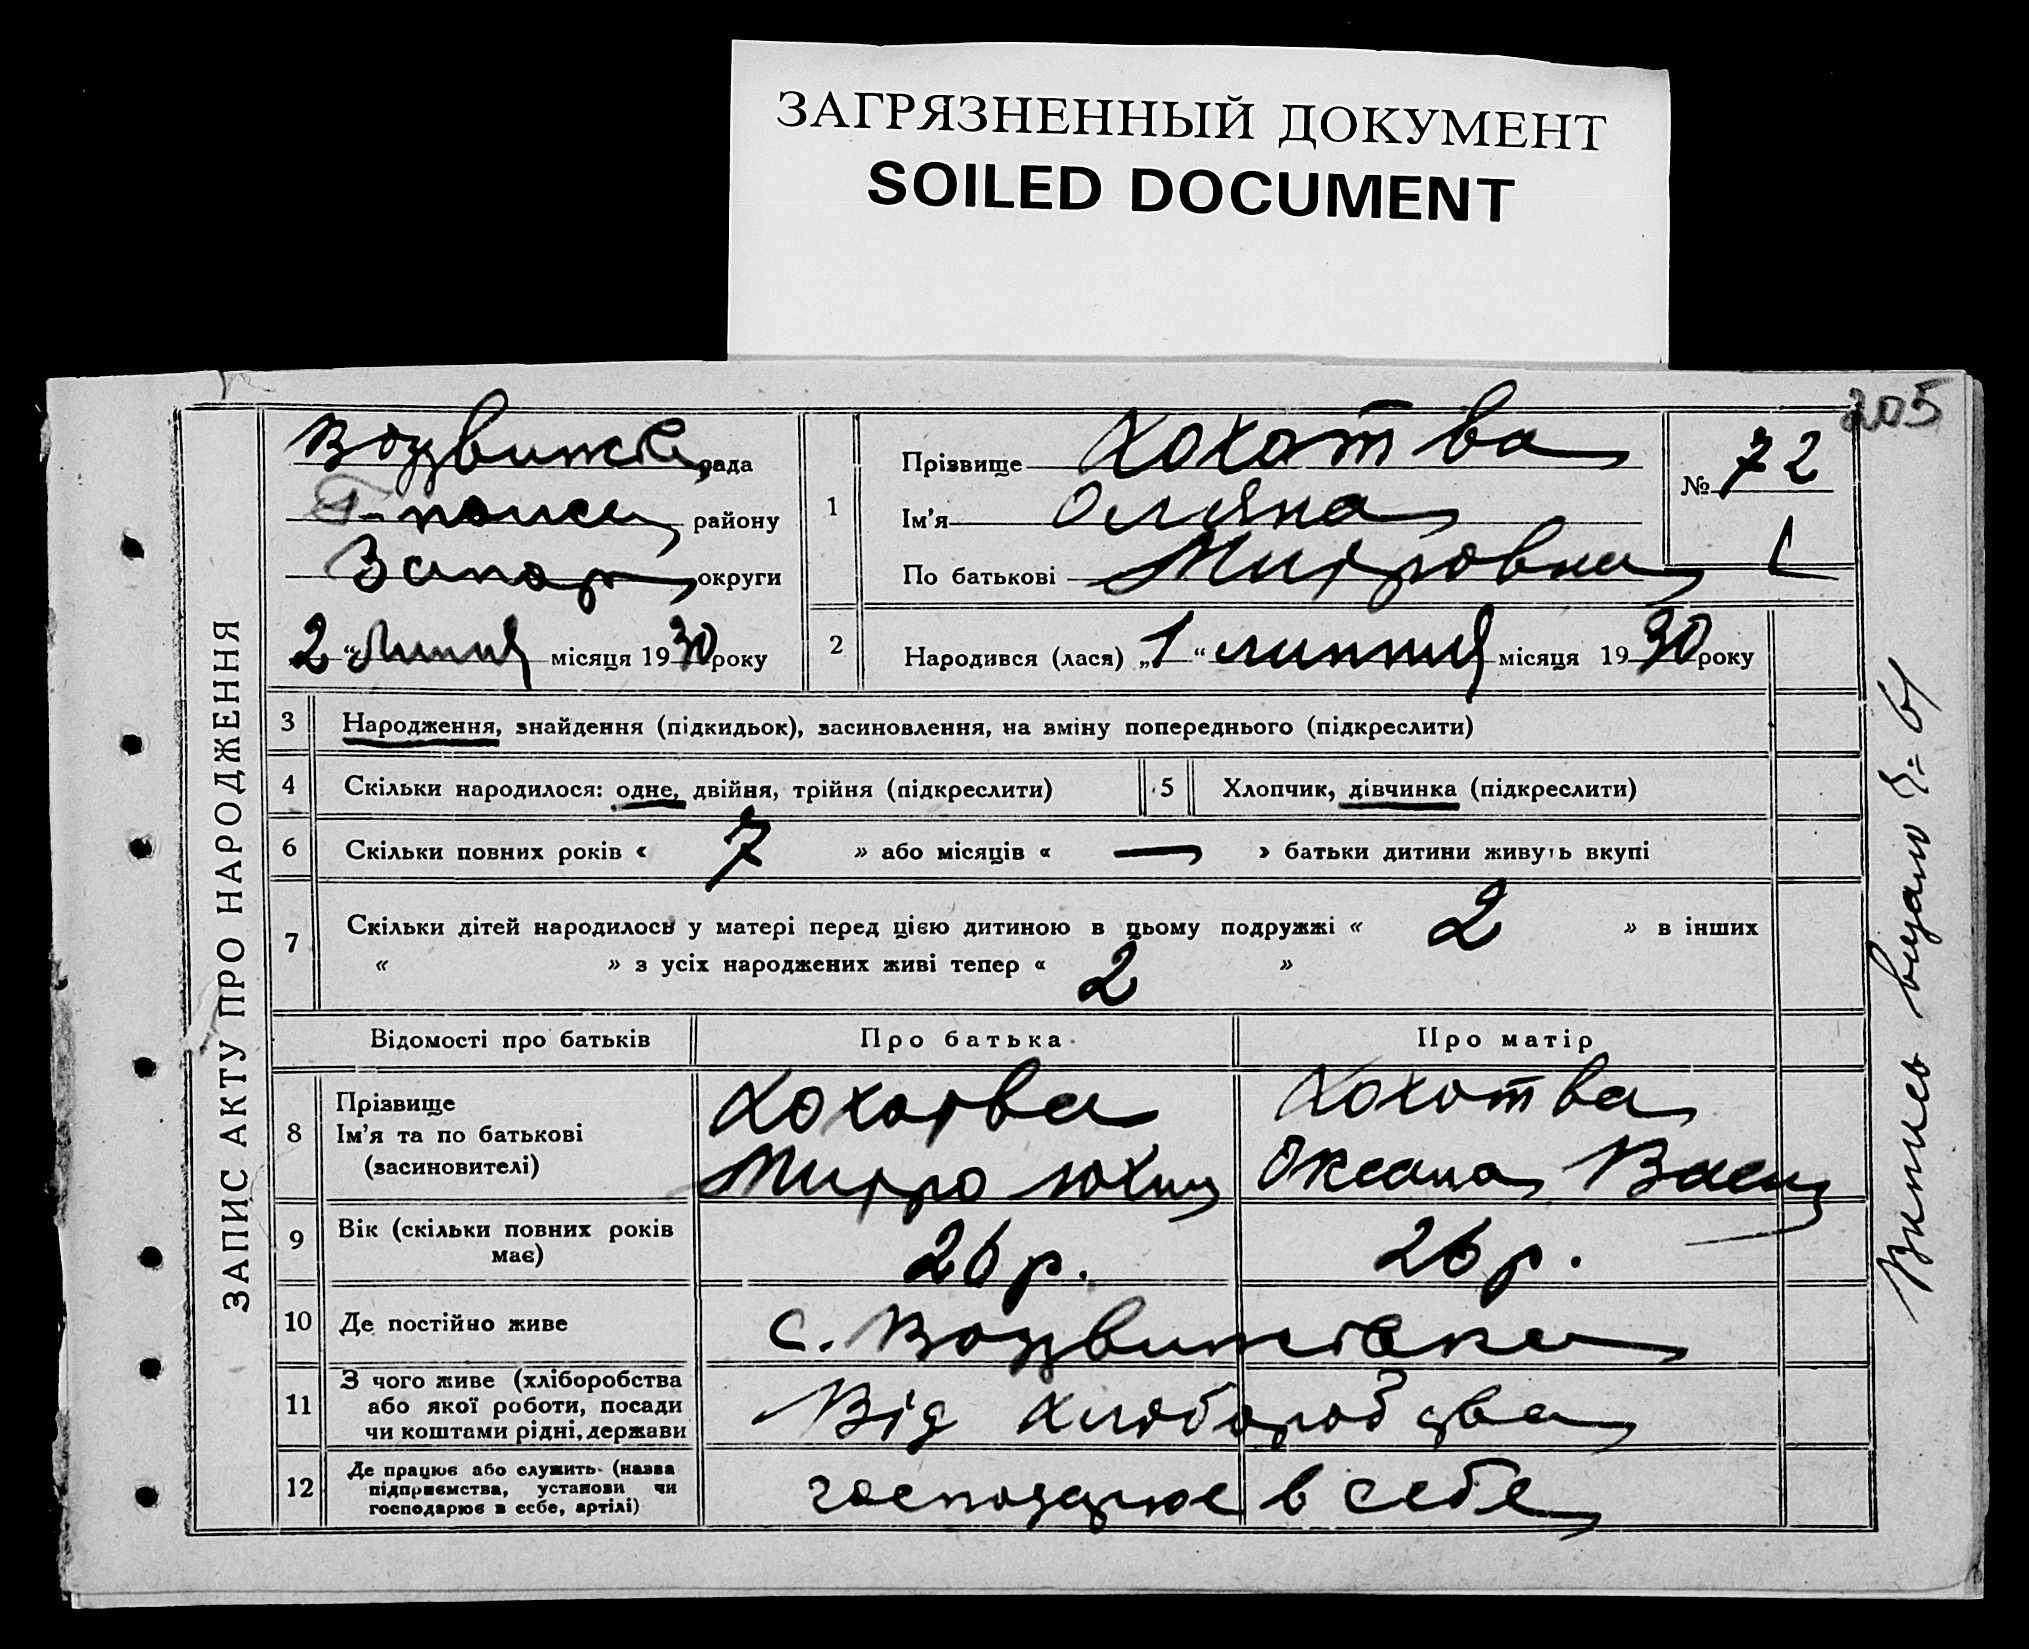 ЗАГРЯЗНЕННЫЙ ДОКУМЕНТ
SOILED DOCUMENT
205
ЗАПИС АКТУ ПРО НАРОДЖЕННЯ
рада
району
Запор округи
2 " Липня місяця 1930 року
1
Прізвище Хохотва
Ім'я Оляна
По батькові Митровна
№ 72
2
Народився (лася) „1" липня місяця 1930 року
3 Народження, знайдення (підкидьок), засиновлення, на зміну попереднього (підкреслити)
4 Скільки народилося: одне, двійня, трійня (підкреслити) 5 Хлопчик, дівчинка (підкреслити)
6 Скільки повних років « 7 » або місяців « — » батьки дитини живуть вкупі
7 Скільки дітей народилось у матері перед цією дитиною в цьому подружжі « 2 » в інших
« » з усіх народжених живі тепер « 2 »
Відомості про батьків Про батька Про матір
8 Прізвище
Ім'я та по батькові
(засиновителі)
Хохотва
Митро Юхим
Хохотва
Оксана Васил
9 Вік (скільки повних років
має)
26 р. 26 р.
10 Де постійно живе с. Воздвижевка
11 З чого живе (хліборобства
або якої роботи, посади
чи коштами рідні, держави
Від хліборобства
12 Де працює або служить (назва
підприємства, установи чи
господарює в себе, артілі)
господарює в себе
Випись видано